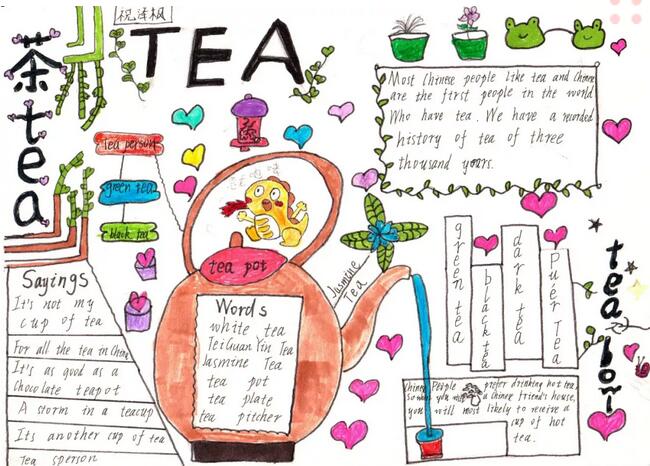 祝泽枫
TEA
茶
tea
Most Chinese people like tea and Chine
are the first people in the world
Who have tea. We have a recorded
history of tea of three
thousand years.
tea person
green tea
black tea
tea pot
Jasmine
Tea
Sayings
It's not my
cup of tea
For all the tea in China
It's as good as a
chocolate teapot
A storm in a teacup
It's another cup of tea
Tea sperson
Words
white tea
TeiGuanYin Tea
Jasmine Tea
tea pot
tea plate
tea pitcher
green tea
black tea
dark tea
Puér Tea
tea
Chinese People prefer drinking hot tea,
so when you a chinese friend's house,
you will most likely to receive a
cup of hot
tea.